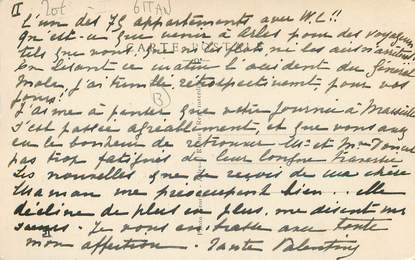 II 20f GITAN
L'un des 75 appartements avec W.C!!
Qu'est-ce que venir à Arles pour des voyageurs
tels que vous
CARTE POSTALE
En lisant ce matin l'accident du Général
Mole, j'ai tremblé, rétrospectivement, pour vos
jours!!
(B)
J'aime à penser que votre journée à Marseille
s'est passée agréablement, et que vous avez
eu le bonheur de retrouver Mr et Mme
pas trop fatigués de leur longue traversée
Les nouvelles que je reçois de ma chère
Maman me préoccupent bien... elle
décline de plus en plus, me disent mes
sœurs. Je vous embrasse avec toute
mon affection. Tante Valentine